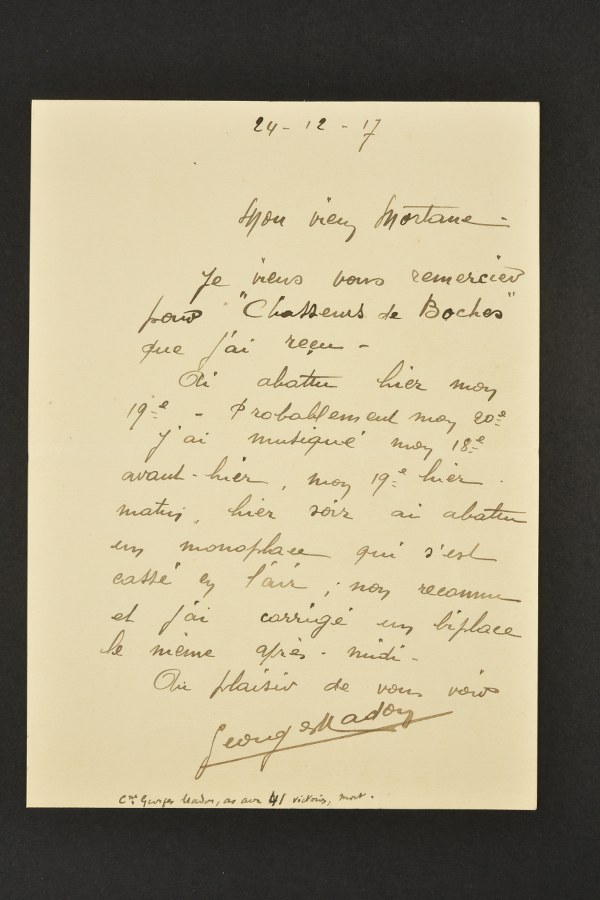 24 - 12 - 17
Mon vieux Mortane -
Je viens vous remercier
pour "Chasseurs de Boches"
que j'ai reçu -
Ai abattu hier mon
19e - Probablement mon 20e
J'ai musiqué mon 18e
avant-hier, mon 19e hier
matin, hier soir ai abattu
un monoplace qui s'est
cassé en l'air ; non reconnu
et j'ai corrigé un biplace
le même après-midi -
Au plaisir de vous voir
Georges Madon
Cne Georges Madon, as aux 41 victoires, mort.